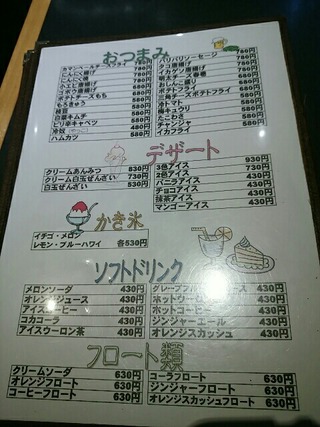 おつまみ
カマンベールチーズフライ 780円
にんにく揚げ 780円
にんにく焼
小エビ唐揚げ
ゴボウ唐揚げ
ポテトチーズもち 580円
もろきゅう 580円
枝豆 580円
白菜キムチ 580円
ピリ辛キャベツ 580円
冷奴 480円
ハムカツ 580円
パリパリソーセージ 680円
タコ唐揚げ
イカゲソ唐揚げ
明太チーズ春巻
おしんこ盛り
ポテトフライ
チーズポテトフライ
冷トマト
梅キュウリ
たこわさ 580円
チャンジャ 580円
イカフライ 580円
デザート
クリームあんみつ 830円
クリーム白玉ぜんざい 730円
白玉ぜんざい 530円
3色アイス 930円
2色アイス 730円
バニラアイス
チョコアイス
抹茶アイス
マンゴーアイス
かき氷
イチゴ・メロン
レモン・ブルーハワイ 各530円
ソフトドリンク
メロンソーダ 430円
オレンジジュース 430円
アイスコーヒー 430円
コカコーラ 430円
アイスウーロン茶 430円
430円
430円
ホットコーヒー 430円
ジンジャーエール 430円
オレンジスカッシュ 430円
フロート類
クリームソーダ 630円
オレンジフロート 630円
コーヒーフロート 630円
コーラフロート 630円
ジンジャーフロート 630円
オレンジスカッシュフロート 630円